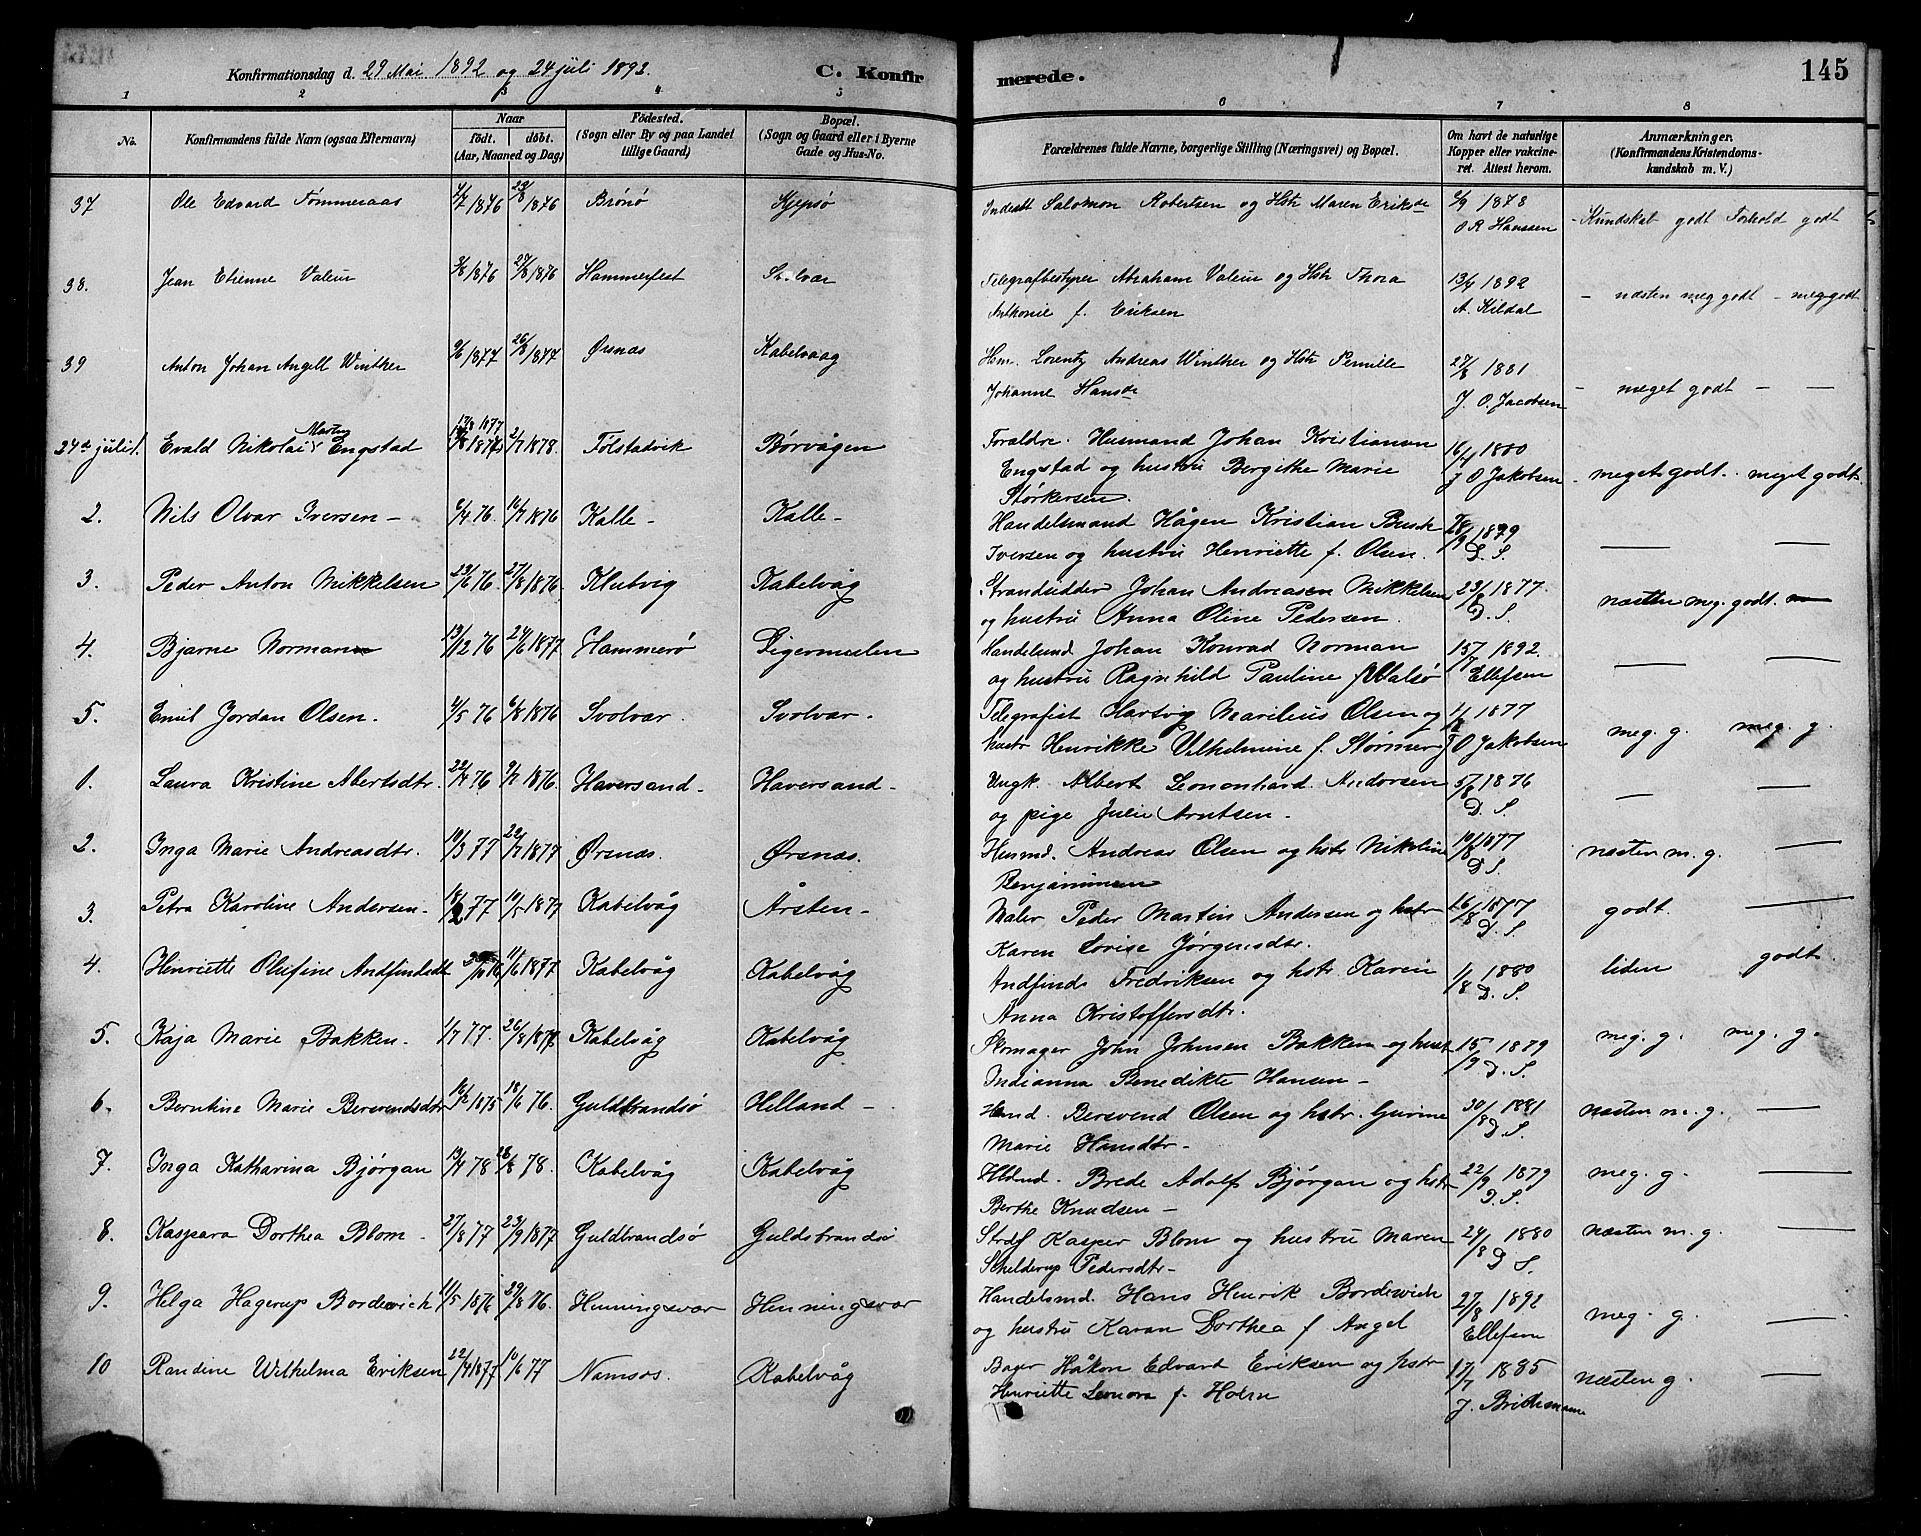 Konfirmationsdag d. 29 Mai 1892 og 24 juli 1892. C. Konfirmerede. 145
1 2 3 4 5 6 7 8
No. Konfirmandens fulde Navn (ogsaa Efternavn) Naar født. døbt. (Aar, Maaned og Dag) Fødested. (Sogn eller By og paa Landet tillige Gaard) Bopæl. (Sogn og Gaard eller i Byerne Gade og Hus-No. Forældrenes fulde Navne, borgerlige Stilling (Næringsvei) og Bopæl. Om havt de naturlige Kopper eller vakcineret. Attest herom. Anmærkninger. (Konfirmandens Kristendomskundskab m. V.)
37 Ole Edvard Tømmeraas 4/7 1876 29/8 1876 Brønø Kjepsø Inderst Salomon Robertsen og Hstr Maren Eriksdr 6/9 1878
O R Hanssen - Kundskab godt Forhold godt
38. Jean Etienne Valeur 3/8 1876 27/8 1876 Hammerfest Svolvær Telegrafbestyrer Abraham Valeur og Hstr Thora 13/4 1892
Antkonie f. Eriksen A. Kildal - næsten meg godt - meg godt
39 Anton Johan Angell Winther 9/6 1877 26/8 1877 Ørsnæs Kabelvaag Hm. Lorentz Andreas Winther og Hstr Pernille 27/8 1881
Johanne Hansdr J. O. Jacobsen - meget godt - -
24de juli 1. Evald Nikolai Martin Engstad 17/8 1877 2/7 1878. Følstadvik Børvågen Foraldre. Husmand Johan Kristiansen 16/4 1880
Engstad og hustru Bergithe Marie J O Jakobsen - meget godt. meget godt.
Størkersen.
2. Nils Olvar Iversen - 6/4 76. 16/7 1876 Kalle - Kalle - Handelsmand Hågen Kristian Busch 28/9 1879
Iversen og hustru Henriette f. Olsen. D. S. — —
3. Peder Anton Mikkelsen 23/6 76. 27/8 1876. Klutvig Kabelvåg Strandsidder Johan Andreasen Mikkelsen 23/8 1877.
og hustru Anna Oline Pedersen. D. S. næsten meg. godt. —
4. Bjarne Norman 19/12 76 24/6 1877 Hammerø Digermulen Handelsmd Johan Konrad Norman 15/7 1892.
og hustru Ragnhild Pauline f Valsø Ellefsen — —
5. Emil Jordan Olsen. 4/5 76 6/8 1876 Svolvær. Svolvær. Telegrafist Hartvig Marilius Olsen og 1/8 1877
hustr Henrikke Vilhelmine f. Størmer J O Jakobsen meg. g. meg. g.
1. Laura Kristine Abertsdtr. 22/4 76 9/7 1876. Haversand - Haversand - Ungk. Albert Leononhard Andersen 5/8 1876
og pige Julie Arntsen - D. S. — —
2. Inga Marie Andreasdtr. 10/3 77 22/7 1877 Ørsnæs. Ørsnæs. Husmd. Andreas Olsen og hstr Nikoline 19/8 1877
Benjaminsen D. S. næsten m. g. —
3. Petra Karoline Andersen - 18/2 77 10/5 1877 Kabelvåg Årsten - Maler Peder Martin Andersen og hstr 26/8 1877
Karen Lovise Jørgensdtr. D. S. godt. —
4. Henriette Olufine Andfindsdt 11/6 1877 Kabelvåg Kabelvåg Andfind Fredriksen og hstr Karen 1/8 1880
Anna Kristoffersdtr. D. S. liden godt.
5. Kaja Marie Bakken. 1/7 77. 26/8 1877 Kabelvåg Kabelvåg Skomager John Johnsen Bakken og hust 15/9 1879
Indianna Benedikte Hansen - D. S. meg. g. meg. g.
6. Berntine Marie Berevendsdtr 16/12 1875 18/6 76. Guldbrandsø Helland - Hmd. Berevend Olsen og hstr. Gurine 30/8 1881
Marie Hansdtr - D S. næsten m. g. —
7. Inga Katharina Bjørgan 19/4 78 26/8 78. Kabelvåg Kabelvåg Hldmd. Brede Adolf Bjørgan og hstr 22/9 1879
Berthe Knudsen - D. S. meg. g. —
8. Kaspara Dorthea Blom - 27/8 77 23/9 1877 Guldbrandsø Guldsbrandsø Strdsf Kasper Blom og hustru Maren 24/8 1880
Schelderup Pedersdtr - D S. næsten m. g. —
9. Helga Hagerup Bordevich 11/5 1876 29/8 76. Henningsvær Henningsvær Handelsmd. Hans Henrik Bordewich 27/8 1892
og hustru Karan Dorthea f Angel Ellefsen meg. g. —
10 Randine Wilhelma Eriksen 22/4 1877. 10/6 77 Namsos. Kabelvåg Bager Håkon Edvard Eriksen og hstr 17/7 1885
Henriette Leonora f. Holm J. Brichmann næsten g. —